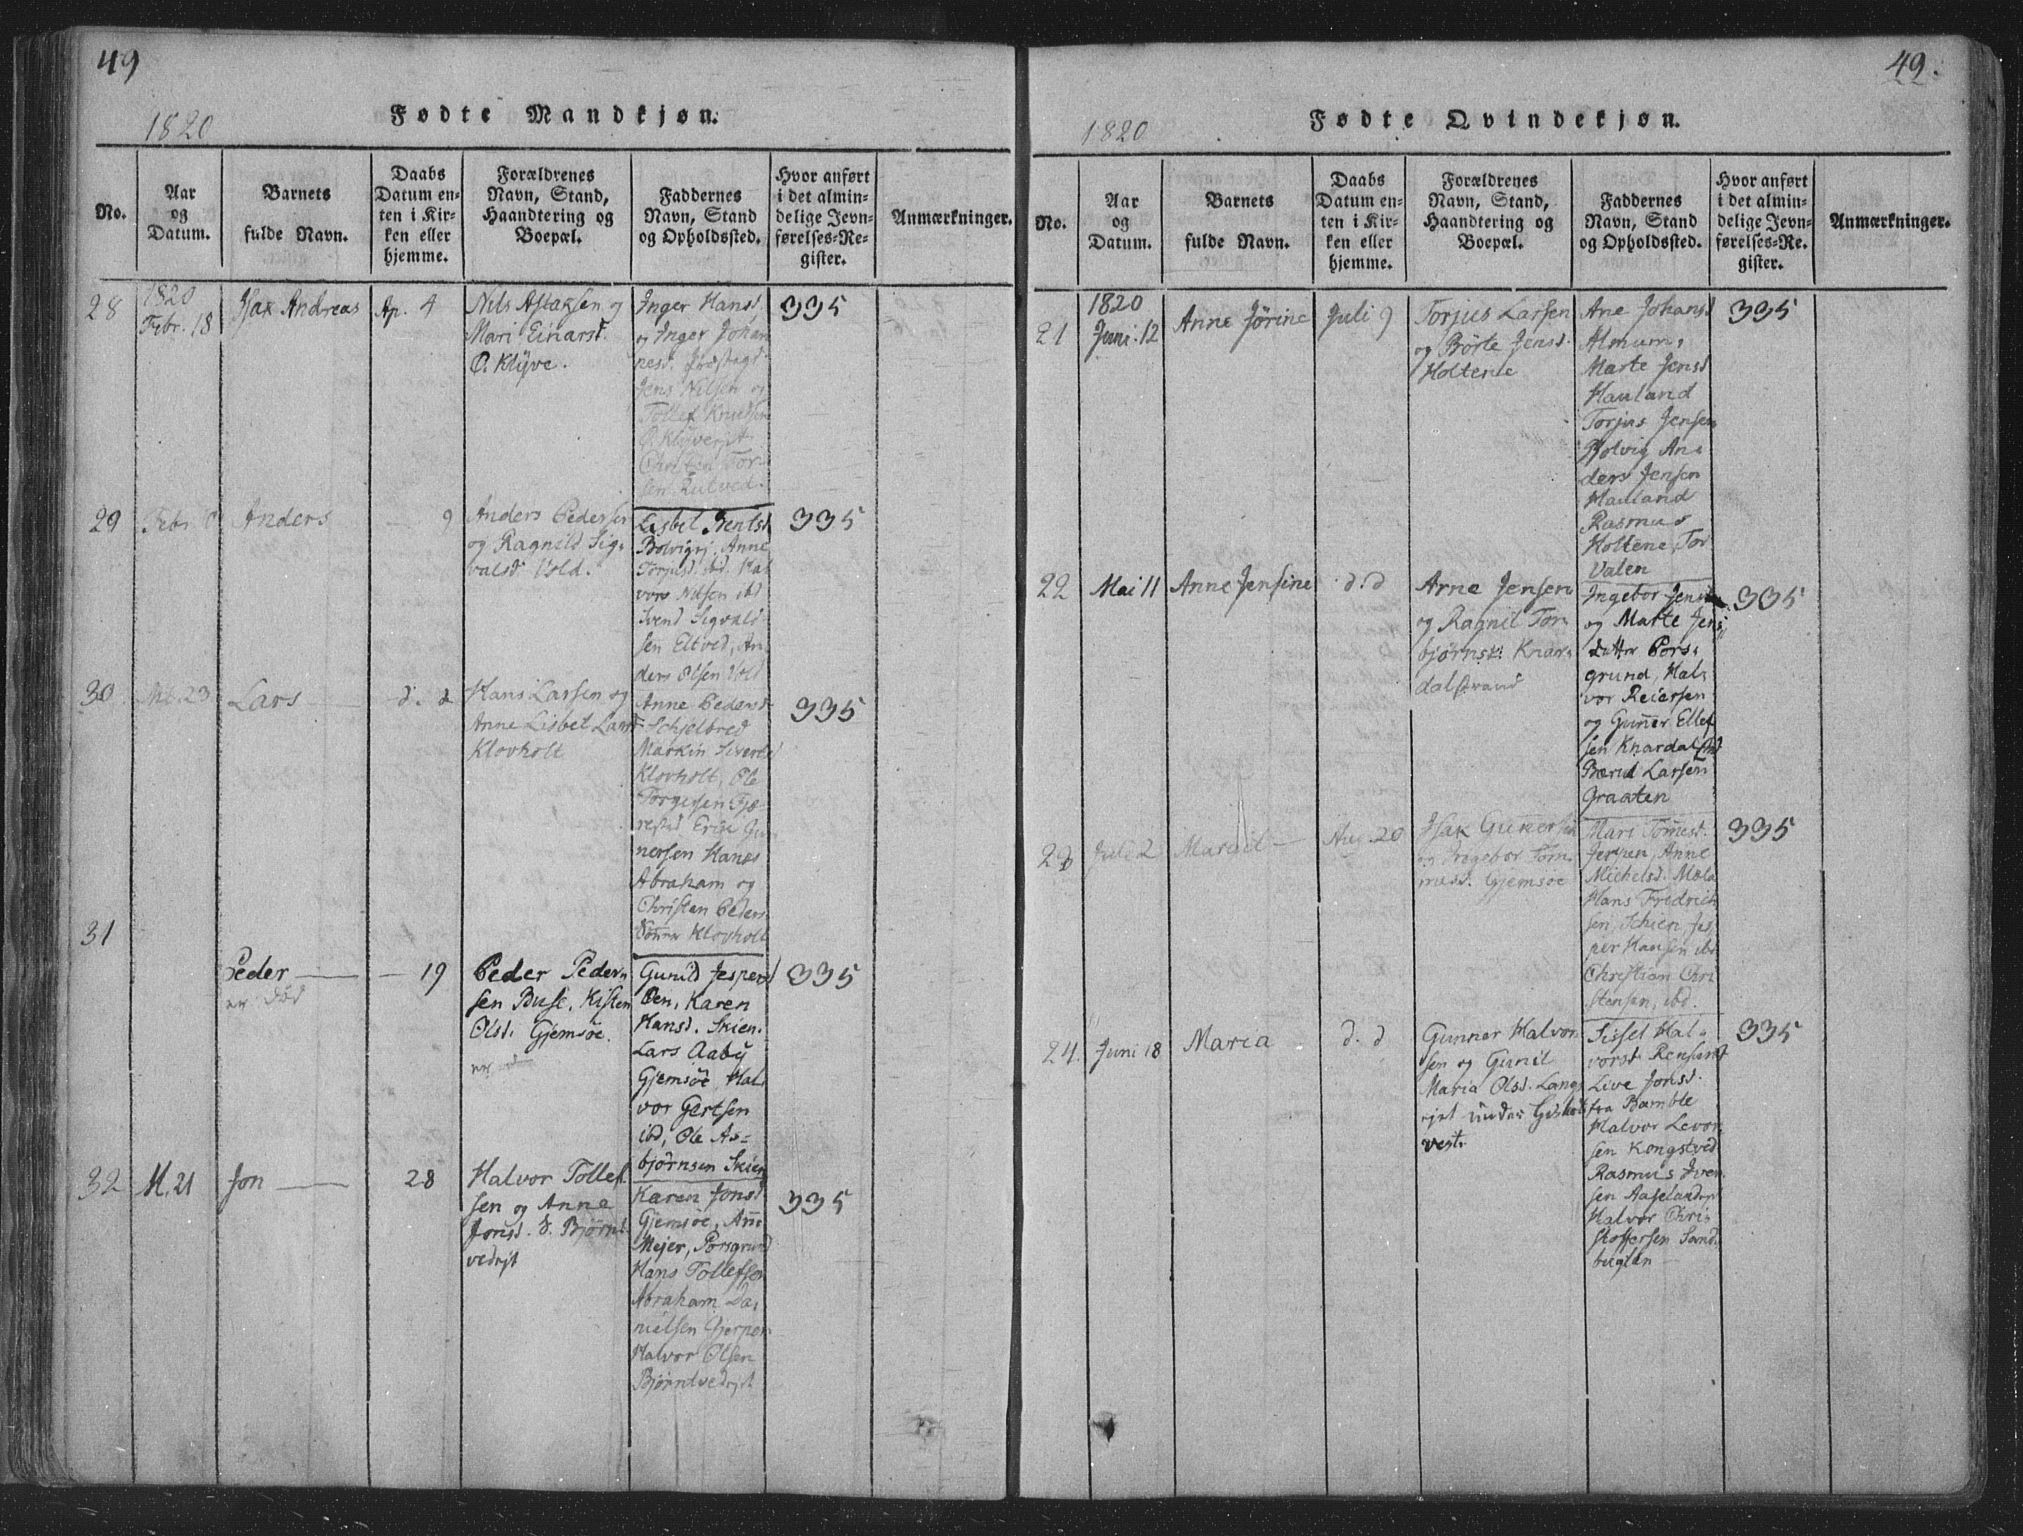 49
1820
Fødte Mandkjøn.
No.
Aar
og
Datum.
Barnets
fulde Navn.
Daabs
Datum en-
ten i Kir-
ken eller
hjemme.
Forældrenes
Navn, Stand,
Haandtering og
Boepæl.
Faddernes
Navn, Stand
og Opholdssted.
Hvor anført
i det almin-
delige Jevn-
førelses-Re-
gister.
Anmærkninger.
28
1820
Febr. 18
Isak Andreas
Ap. 4
Nils Aslaksen og
Mari Einarsd.
Ø. Klyve.
Inger Hansd.
og Inger Johan
nesd.
Jens Nilsen og
Tollef Knudsen
Ø. Klyveejt
Christen Tor-
sen
335
29
Febr.
Anders
9
Anders Pedersen
og Ragnild Sig-
valsd. Vold.
Lisbet Bentsd.
Bolvigej. Anne
Torjusd. ibd. Hal
vors Nilsen ibd
Svend Sigvald
sen Eltved, An
ders Olsen Vold
335
30
Mt. 23
Lars
d. d
Hans Larsen og
Anne Lisbet Larsd
Klovholt
Anne Pedersd.
Schjelbred
Maskin Siverts
Klovholt, Ole
Torgersen Fjæ
restad Erik Gun
nersen Hanes
Abraham og
Christen Peders
Sønner Klovholt
335
31
Peder
er død
19
Peder Peder-
sen Buse, Kisten
Olsd. Gjemsøe.
Gunild Jespers
Den, Karen
Hansd. Skien.
Lars Aaby
Gjemsøe, Hal
vor Gertsen
ibd, Ole As-
bjørnsen Skien
335
32
M. 21
Jon
28
Halvor Tollef
sen og Anne
Jonsd. S. Bjørnt
vedejt
Karen Jonsd
Gjemsøe, Ann
Mejer, Porsgrund
Hans Tollefsen
Abraham Da-
nielsen Gjerpen
Halvor Olsen
Bjørntvedejt
335
49.
1820
Fødte Qvindekjøn.
No.
Aar
og
Datum.
Barnets
fulde Navn.
Daabs
Datum en-
ten i Kir-
ken eller
hjemme.
Forældrenes
Navn, Stand,
Haandtering og
Boepæl.
Faddernes
Navn, Stand
og Opholdssted.
Hvor anført
i det almin-
delige Jevn-
førelses-Re-
gister.
Anmærkninger.
21
1820
Juni. 12
Anne Jørine
Juli 9
Torjus Larsen
og Børte Jensd.
Holtene
Ane Johansd
Almum,
Marte Jensd
Hauland
Torjus Jensen
Bolvig An-
ders Jensen
Hauland
Rasmus
Holtene, Tor
Valen
335
22
Mai 11
Anne Jensine
d. d
Arne Jensen
og Ragnil Tor-
bjørnsd. Knar-
dalstrand
Ingebor Jens
og Marte Jens
datter Pors-
grund, Hal-
vor Reiersen
og Gunner Ellef
sen Knardalstrd
Bærul Larsen
Graaten
335
23
Juli 2
Marail
Aug. 20
Isak Gunersen
og Ingebor Tom
mesd. Gjemsøe
Mari Tommesd.
Jerpen, Anne
Michelsd. Mæla
Hans Fredrich
sen, Schien, Jes
per Hansen ibd
Christian Chri
stensen, ibd.
335
24.
Juni 18
Maria
d. d
Gunner Halvor
sen og Gunil
Maria Olsd. Lang
ejet under Gisholt
vest.
Sissel Hal-
vorsd. Rensund
Live Jonsd.
fra Bamble
Halvor Levor
sen Kongstved
Rasmus Iven
sen Aaselandejt
Halvor Chri-
stoffersen Sand-
bugten
335